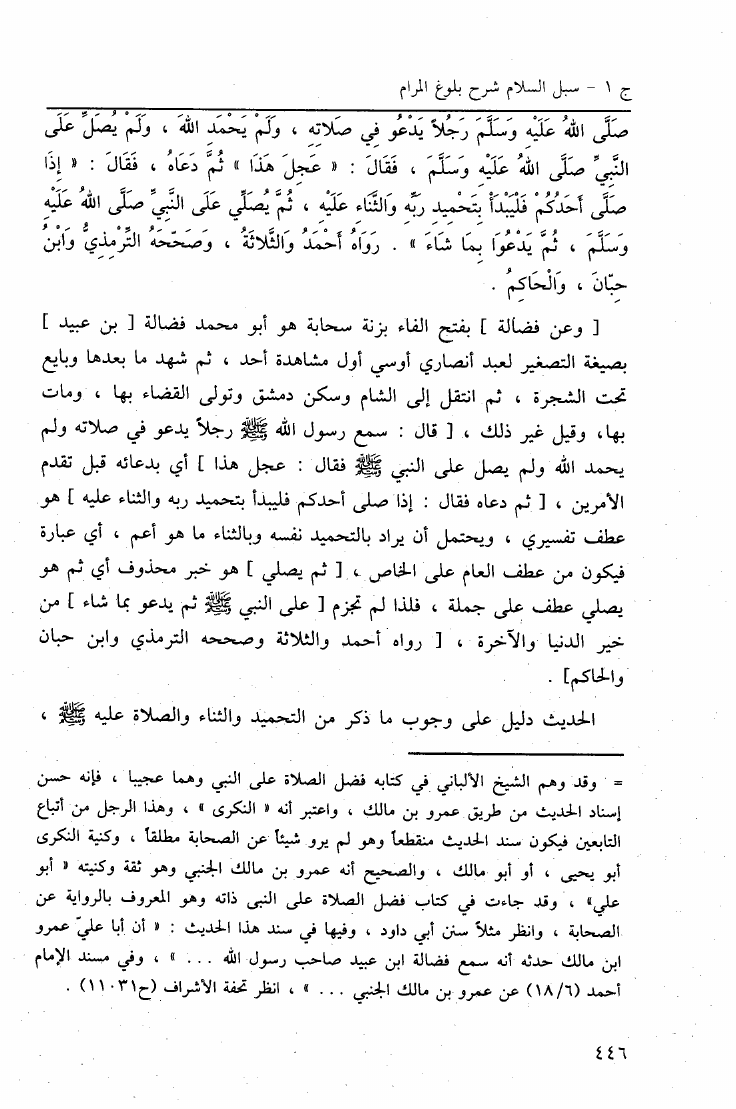 ج ١ - سبل السلام شرح بلوغ المرام
صَلَّى اللهُ عَلَيْهِ وَسَلَّمَ رَجُلاً يَدْعُو فِي صَلاَتِهِ ، وَلَمْ يَحْمَدِ اللهَ ، وَلَمْ يُصَلِّ عَلَى
النَّبِيِّ صَلَّى اللهُ عَلَيْهِ وَسَلَّمَ ، فَقَالَ : « عَجِلَ هَذَا » ثُمَّ دَعَاهُ ، فَقَالَ : « إِذَا
صَلَّى أَحَدُكُمْ فَلْيَبْدَأْ بِتَحْمِيدِ رَبِّهِ وَالثَّنَاءِ عَلَيْهِ ، ثُمَّ يُصَلِّي عَلَى النَّبِيِّ صَلَّى اللهُ عَلَيْهِ
وَسَلَّمَ ، ثُمَّ يَدْعُوَا بِمَا شَاءَ » . رَوَاهُ أَحْمَدُ وَالثَّلاثَةُ ، وَصَحَّحَهُ التِّرْمِذِيُّ وَابْنُ
حِبّانَ ، وَالْحَاكِمُ .
[ وعن فضالة ] بفتح الفاء بزنة سحابة هو أبو محمد فضالة [ بن عبيد ]
بصيغة التصغير لعبد أنصاري أوسي أول مشاهدة أحد ، ثم شهد ما بعدها وبايع
تحت الشجرة ، ثم انتقل إلى الشام وسكن دمشق وتولى القضاء بها ، ومات
بها، وقيل غير ذلك ، [ قال : سمع رسول الله ﷺ رجلاً يدعو في صلاته ولم
يحمد الله ولم يصل على النبي ﷺ فقال : عجل هذا ] أي بدعائه قبل تقدم
الأمرين ، [ ثم دعاه فقال : إذا صلى أحدكم فليبدأ بتحميد ربه والثناء عليه ] هو
عطف تفسيري ، ويحتمل أن يراد بالتحميد نفسه وبالثناء ما هو أعم ، أي عبارة
فيكون من عطف العام على الخاص ، [ ثم يصلي ] هو خبر محذوف أي ثم هو
يصلي عطف على جملة ، فلذا لم تجزم [ على النبي ﷺ ثم يدعو بما شاء ] من
خير الدنيا والآخرة ، [ رواه أحمد والثلاثة وصححه الترمذي وابن حبان
والحاكم] .
الحديث دليل على وجوب ما ذكر من التحميد والثناء والصلاة عليه ﷺ ،
= وقد وهم الشيخ الألباني في كتابه فضل الصلاة على النبي وهما عجيبا ، فإنه حسن
إسناد الحديث من طريق عمرو بن مالك ، واعتبر أنه « النكرى » ، وهذا الرجل من أتباع
التابعين فيكون سند الحديث منقطعاً وهو لم يرو شيئاً عن الصحابة مطلقاً ، وكنية النكرى
أبو يحيى ، أو أبو مالك ، والصحيح أنه عمرو بن مالك الجنبي وهو ثقة وكنيته « أبو
علي» ، وقد جاءت في كتاب فضل الصلاة على النبى ذاته وهو المعروف بالرواية عن
الصحابة ، وانظر مثلاً سنن أبي داود ، وفيها في سند هذا الحديث : « أن أبا عليّ عمرو
ابن مالك حدثه أنه سمع فضالة ابن عبيد صاحب رسول الله ... » ، وفي مسند الإمام
أحمد (١٨/٦) عن عمرو بن مالك الجنبي ... » ، انظر تحفة الأشراف (ح١١٠٣١) .
٤٤٦